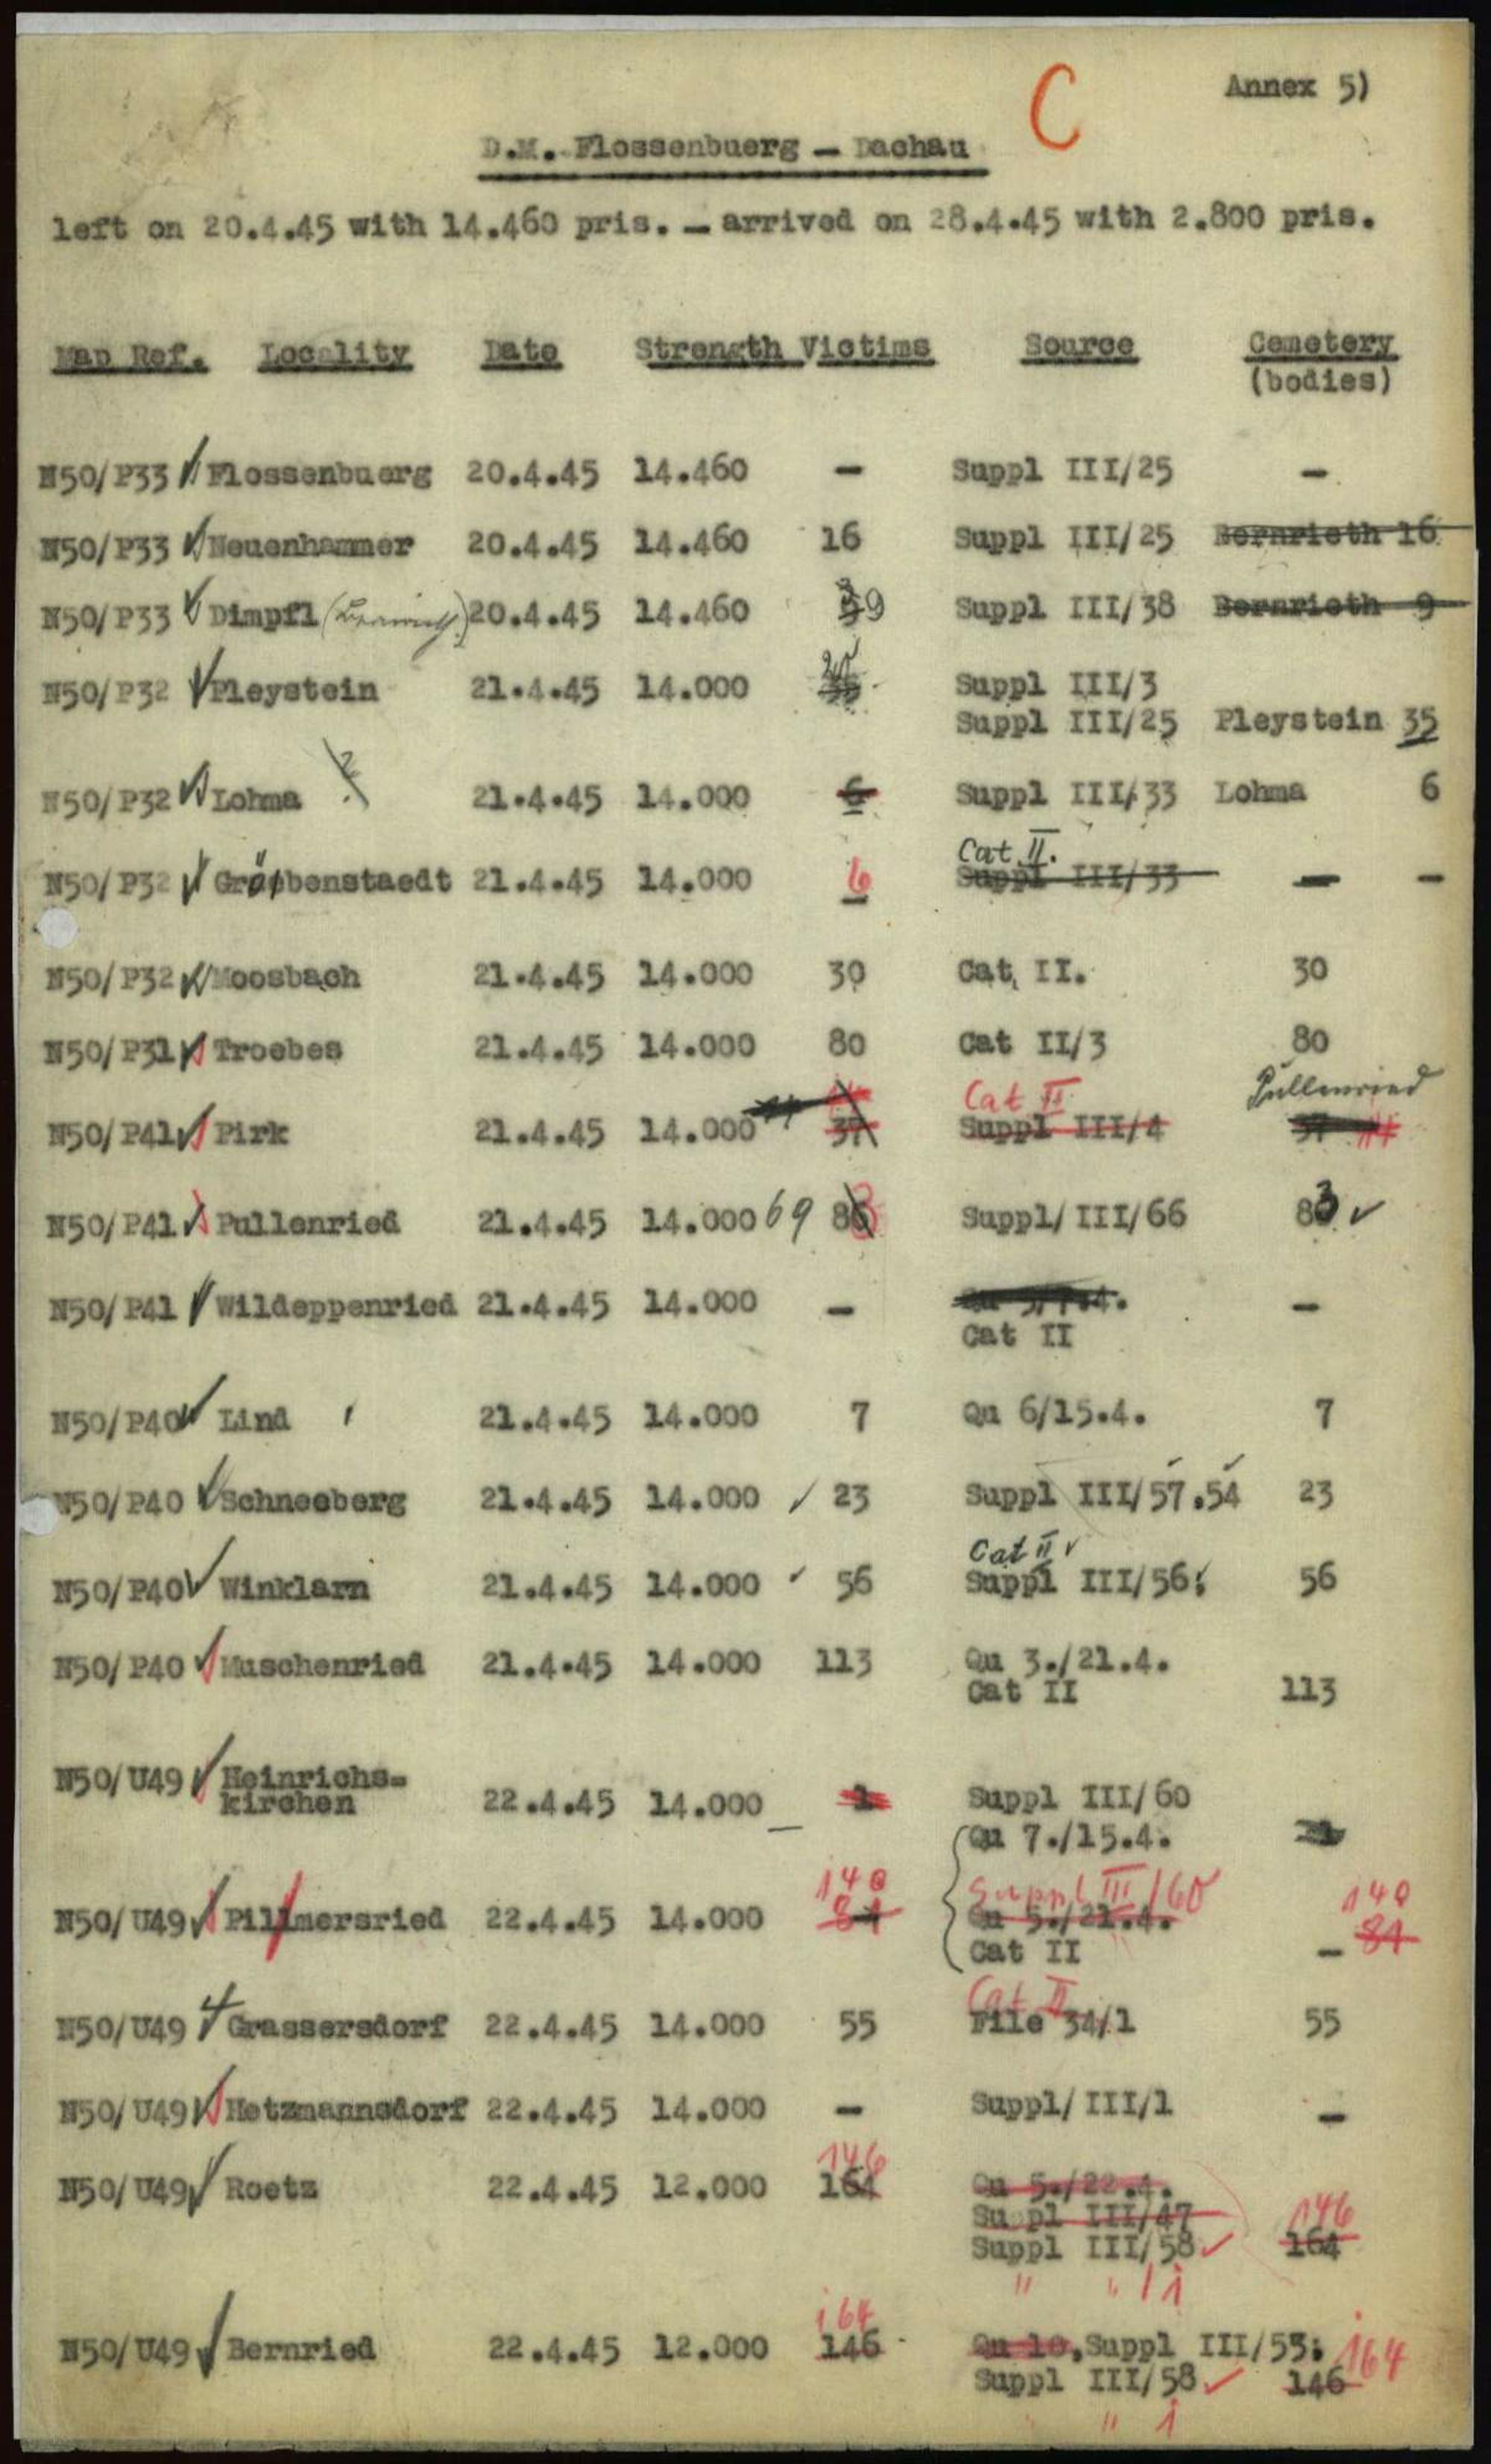 C
Annex 5)
D.M. Flossenbuerg - Dachau
left on 20.4.45 with 14.460 pris. - arrived on 28.4.45 with 2.800 pris.
Map Ref. Locality Date Strength Victims Source Cemetery
(bodies)
N50/P33 Flossenbuerg 20.4.45 14.460 - Suppl III/25 -
N50/P33 Neuenhammer 20.4.45 14.460 16 Suppl III/25 Bernrieth 16
N50/P33 Dimpfl 20.4.45 14.460 9 Suppl III/38 Bernrieth 9
N50/P32 Pleystein 21.4.45 14.000 Suppl III/3
Suppl III/25 Pleystein 35
N50/P32 Lohma ? 21.4.45 14.000 6 Suppl III/33 Lohma 6
Cat II.
N50/P32 Gröbenstaedt 21.4.45 14.000 6 Suppl III/33 - -
N50/P32 Moosbach 21.4.45 14.000 30 Cat II. 30
N50/P31 Troebes 21.4.45 14.000 80 Cat II/3 80
Cat II Pullenried
N50/P41 Pirk 21.4.45 14.000 37 Suppl III/4 37
N50/P41 Pullenried 21.4.45 14.000 69 83 Suppl/III/66 83
N50/P41 Wildeppenried 21.4.45 14.000 - -
Cat II
N50/P40 Lind 21.4.45 14.000 7 Qu 6/15.4. 7
N50/P40 Schneeberg 21.4.45 14.000 23 Suppl III/57.54 23
Cat II
N50/P40 Winklarn 21.4.45 14.000 56 Suppl III/56; 56
N50/P40 Muschenried 21.4.45 14.000 113 Qu 3./21.4.
Cat II 113
N50/U49 Heinrichs-
kirchen 22.4.45 14.000 - 1 Suppl III/60
Qu 7./15.4.
140 Suppl III/60 140
N50/U49 Pillmersried 22.4.45 14.000 81 Qu 5./21.4. 81
Cat II -
Cat II
N50/U49 Grassersdorf 22.4.45 14.000 55 File 34/1 55
N50/U49 Hetzmannsdorf 22.4.45 14.000 - Suppl/III/1 -
146
N50/U49 Roetz 22.4.45 12.000 164 Qu 5./22.4.
Suppl III/47 146
Suppl III/58 164
" " / 1
164
N50/U49 Bernried 22.4.45 12.000 146 Qu 10, Suppl III/53; 164
Suppl III/58 146
" 1